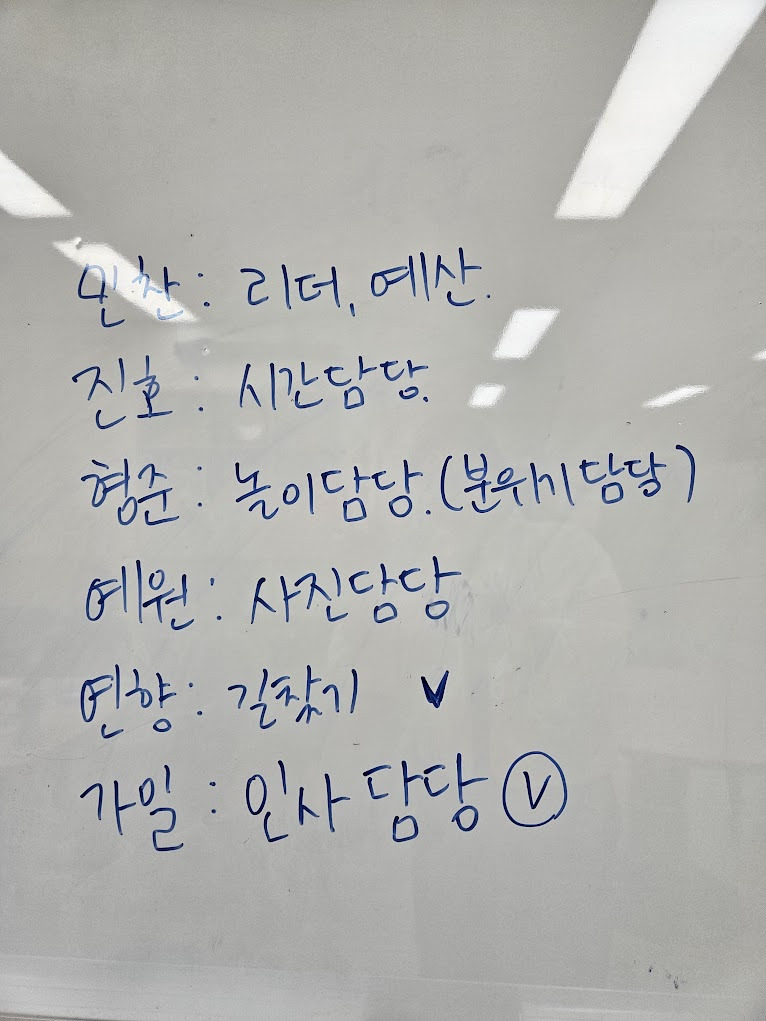 민찬: 리더, 예산.
진호: 시간담당.
형준: 놀이담당.(분위기담당)
예원: 사진담당
연향: 길찾기 V
가일: 인사 담당 V